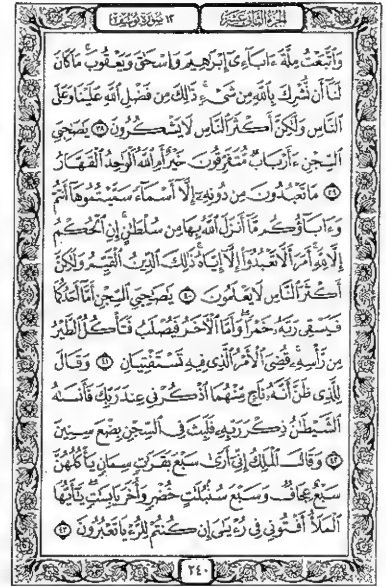 الجزء الثاني عشر
١٢ سورة يوسف
وَٱتَّبَعْتُ مِلَّةَ ءَابَآءِىٓ إِبْرَٰهِيمَ وَإِسْحَٰقَ وَيَعْقُوبَ ۚ مَا كَانَ
لَنَآ أَن نُّشْرِكَ بِٱللَّهِ مِن شَىْءٍ ۚ ذَٰلِكَ مِن فَضْلِ ٱللَّهِ عَلَيْنَا وَعَلَى
ٱلنَّاسِ وَلَٰكِنَّ أَكْثَرَ ٱلنَّاسِ لَا يَشْكُرُونَ ٣٨ يَٰصَٰحِبَىِ
ٱلسِّجْنِ ءَأَرْبَابٌ مُّتَفَرِّقُونَ خَيْرٌ أَمِ ٱللَّهُ ٱلْوَٰحِدُ ٱلْقَهَّارُ
٣٩ مَا تَعْبُدُونَ مِن دُونِهِۦٓ إِلَّآ أَسْمَآءً سَمَّيْتُمُوهَآ أَنتُمْ
وَءَابَآؤُكُم مَّآ أَنزَلَ ٱللَّهُ بِهَا مِن سُلْطَٰنٍ ۚ إِنِ ٱلْحُكْمُ
إِلَّا لِلَّهِ ۚ أَمَرَ أَلَّا تَعْبُدُوٓا۟ إِلَّآ إِيَّاهُ ۚ ذَٰلِكَ ٱلدِّينُ ٱلْقَيِّمُ وَلَٰكِنَّ
أَكْثَرَ ٱلنَّاسِ لَا يَعْلَمُونَ ٤٠ يَٰصَٰحِبَىِ ٱلسِّجْنِ أَمَّآ أَحَدُكُمَا
فَيَسْقِى رَبَّهُۥ خَمْرًا ۖ وَأَمَّا ٱلْءَاخَرُ فَيُصْلَبُ فَتَأْكُلُ ٱلطَّيْرُ
مِن رَّأْسِهِۦ ۚ قُضِىَ ٱلْأَمْرُ ٱلَّذِى فِيهِ تَسْتَفْتِيَانِ ٤١ وَقَالَ
لِلَّذِى ظَنَّ أَنَّهُۥ نَاجٍ مِّنْهُمَا ٱذْكُرْنِى عِندَ رَبِّكَ فَأَنسَىٰهُ
ٱلشَّيْطَٰنُ ذِكْرَ رَبِّهِۦ فَلَبِثَ فِى ٱلسِّجْنِ بِضْعَ سِنِينَ
٤٢ وَقَالَ ٱلْمَلِكُ إِنِّىٓ أَرَىٰ سَبْعَ بَقَرَٰتٍ سِمَانٍ يَأْكُلُهُنَّ
سَبْعٌ عِجَافٌ وَسَبْعَ سُنۢبُلَٰتٍ خُضْرٍ وَأُخَرَ يَابِسَٰتٍ ۖ يَٰٓأَيُّهَا
ٱلْمَلَأُ أَفْتُونِى فِى رُءْيَٰىَ إِن كُنتُمْ لِلرُّءْيَا تَعْبُرُونَ ٤٣
٢٤٠